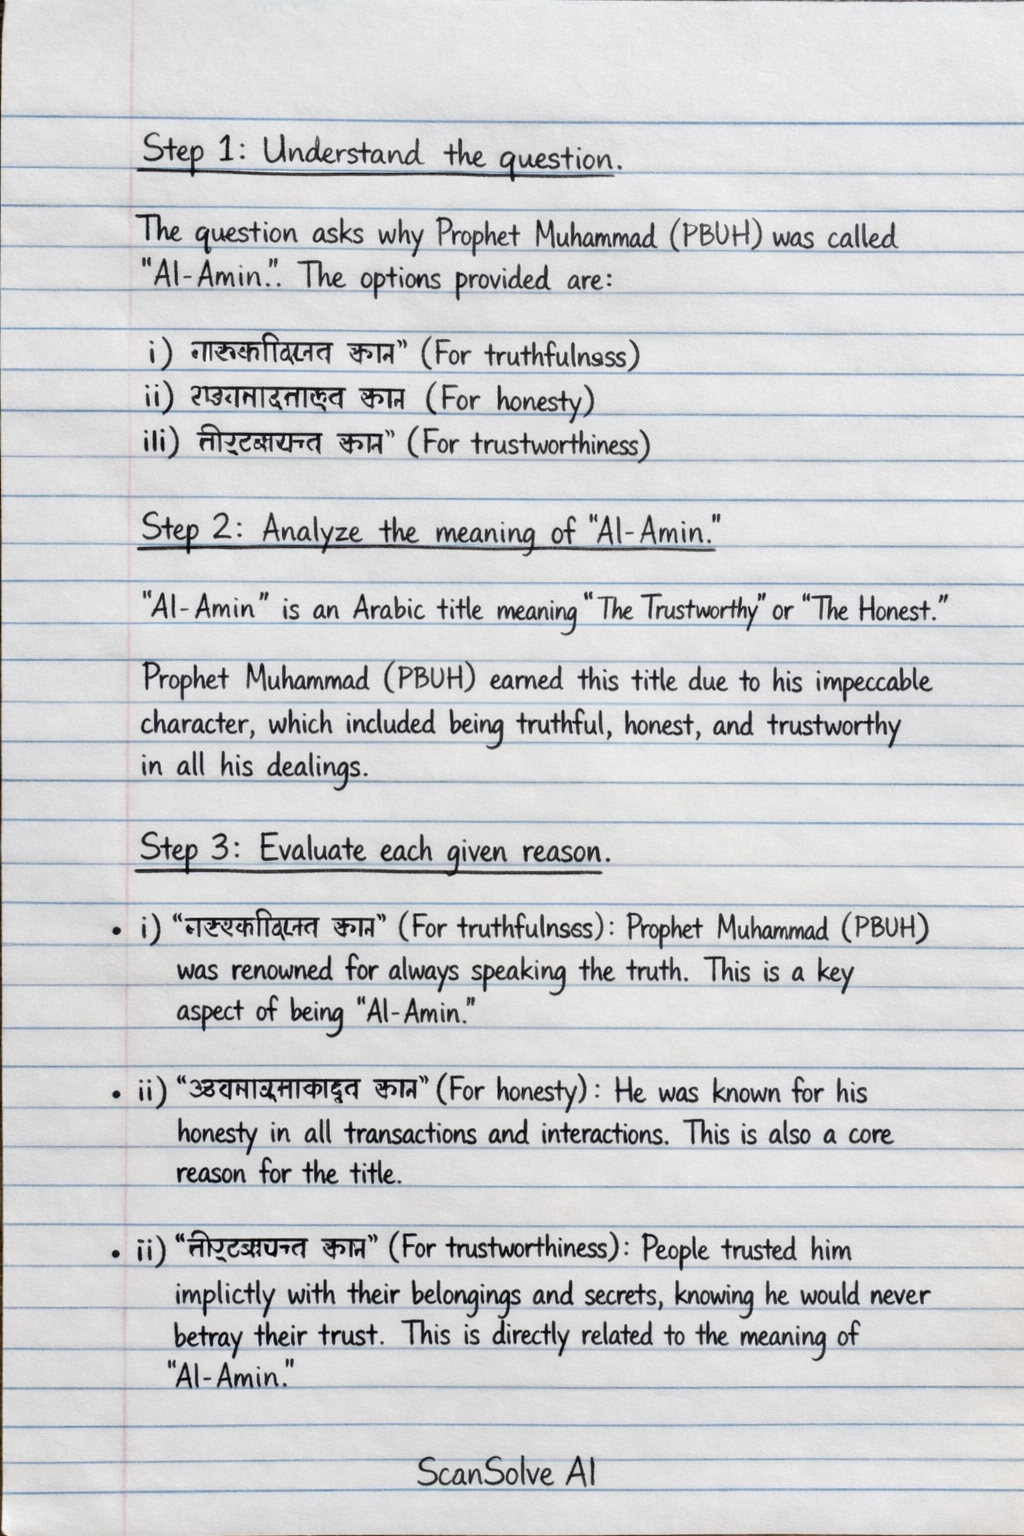 Step 1: Understand the question.
The question asks why Prophet Muhammad (PBUH) was called
"Al-Amin.". The options provided are:
i) (For truthfulness)
ii) (For honesty)
ili) (For trustworthiness)
Step 2: Analyze the meaning of "Al-Amin."
"Al-Amin" is an Arabic title meaning "The Trustworthy" or "The Honest."
Prophet Muhammad (PBUH) earned this title due to his impeccable
character, which included being truthful, honest, and trustworthy
in all his dealings.
Step 3: Evaluate each given reason.
• i) (For truthfulnsss): Prophet Muhammad (PBUH)
was renowned for always speaking the truth. This is a key
aspect of being "Al-Amin."
• ii) (For honesty): He was known for his
honesty in all transactions and interactions. This is also a core
reason for the title.
• ii) (For trustworthiness): People trusted him
implictly with their belongings and secrets, knowing he would never
betray their trust. This is directly related to the meaning of
"Al-Amin."
ScanSolve AI